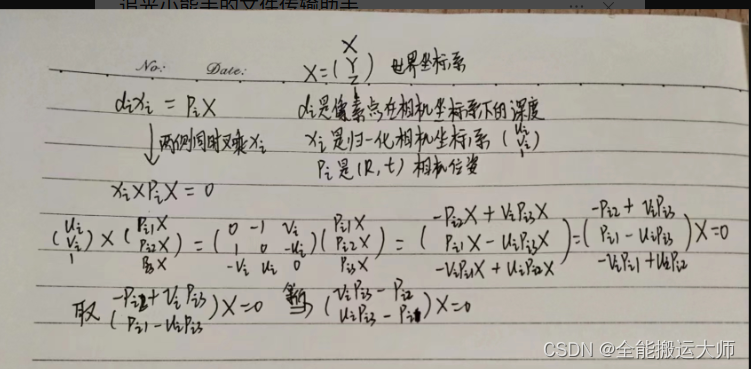 追光小能手的文件传输助手
No: Date:
X=(X Y Z) 世界坐标系
dᵢxᵢ = PᵢX dᵢ是像素点在相机坐标系下的深度
↓两侧同时叉乘xᵢ xᵢ是归一化相机坐标系 (uᵢ vᵢ 1)
Pᵢ是(R,t)相机位姿
xᵢ×PᵢX=0
(uᵢ vᵢ 1)×(Pᵢ₁X Pᵢ₂X Pᵢ₃X)=(0 -1 vᵢ 1 0 -uᵢ -vᵢ uᵢ 0)(Pᵢ₁X Pᵢ₂X Pᵢ₃X)=(-Pᵢ₂X+vᵢPᵢ₃X Pᵢ₁X-uᵢPᵢ₃X -vᵢPᵢ₁X+uᵢPᵢ₂X)=(-Pᵢ₂+vᵢPᵢ₃ Pᵢ₁-uᵢPᵢ₃ -vᵢPᵢ₁+uᵢPᵢ₂)X=0
取(-Pᵢ₂+vᵢPᵢ₃ Pᵢ₁-uᵢPᵢ₃)X=0 (vᵢPᵢ₃-Pᵢ₂ uᵢPᵢ₃-Pᵢ₁)X=0
CSDN @全能搬运大师